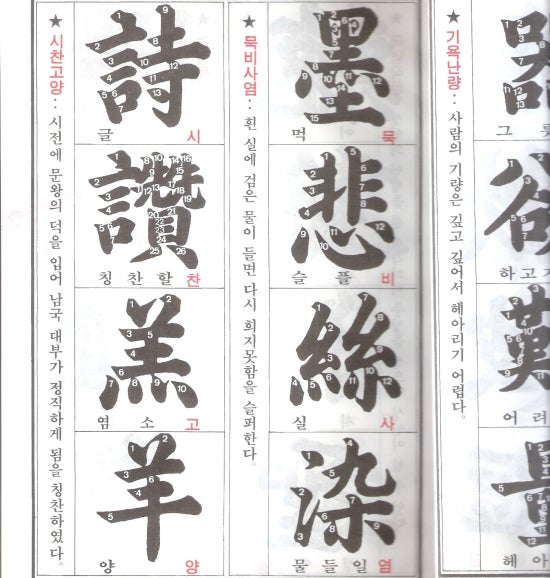 그
하고
어려
헤아
★ 기욕난량: 사람의 기량은 깊고 깊어서 헤아리기 어렵다.
墨
먹 묵
悲
슬플 비
絲
실 사
染
물들일 염
★ 묵비사염: 흰 실에 검은 물이 들면 다시 희지못함을 슬퍼한다.
詩
글 시
讚
칭찬할 찬
羔
염소 고
羊
양 양
★ 시찬고양: 시전에 문왕의 덕을 입어 남국 대부가 정직하게 됨을 칭찬하였다.